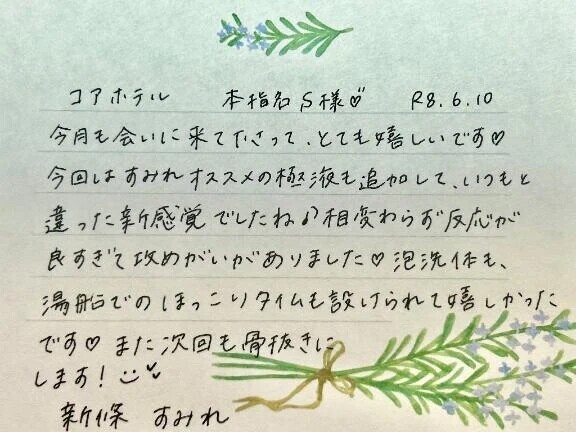 コアホテル 本指名S様♡ R8.6.10
今月も会いに来て下さって、とても嬉しいです♡
今回はすみれオススメの極液も追加して、いつもと
違った新感覚でしたね♪相変わらず反応が
良すぎて攻めがいがありました♡泡洗体も、
湯船でのほっこりタイムも設けられて嬉しかった
です♡また次回も骨抜きに
します!
新條 すみれ